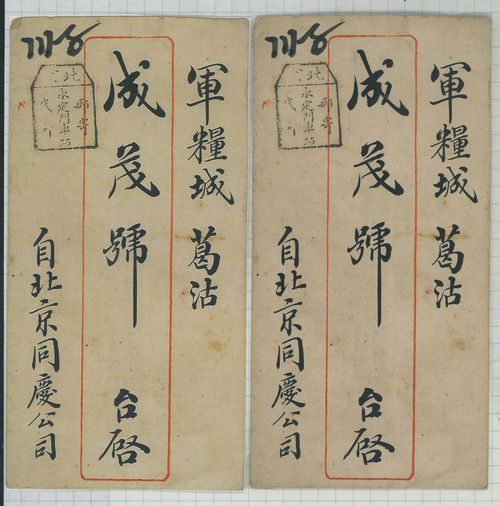 軍糧城 葛沽
成茂號 台啓
自北京同慶公司
北
郵寄
永定門車站
代
軍糧城 葛沽
成茂號 台啓
自北京同慶公司
北
郵寄
永定門車站
代